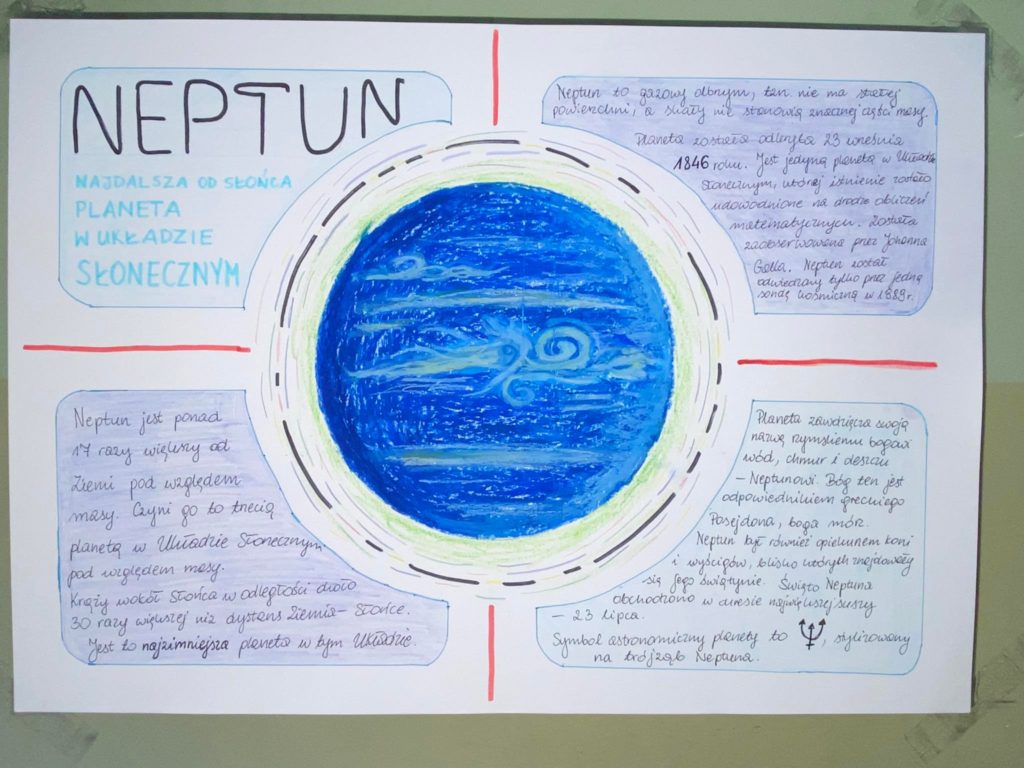 NEPTUN
NAJDALSZA OD SŁOŃCA
PLANETA
W UKŁADZIE
SŁONECZNYM
Neptun to gazowy olbrzym, ten nie ma stałej
powierzchni, a skały nie stanowią znacznej części masy.
Planeta została odkryta 23 września
1846 roku. Jest jedyną planetą w Układzie
Słonecznym, której istnienie zostało
udowodnione na drodze obliczeń
matematycznych. Została
zaobserwowana przez Johanna
Galla. Neptun został
odwiedzony tylko przez jedną
sondę kosmiczną w 1989r.
Neptun jest ponad
17 razy większy od
Ziemi pod względem
masy. Czyni go to trzecią
planetą w Układzie Słonecznym
pod względem masy.
Krąży wokół Słońca w odległości około
30 razy większej niż dystans Ziemia - Słońce.
Jest to najzimniejsza planeta w tym Układzie.
Planeta zawdzięcza swoją
nazwę rzymskiemu bogowi
wód, chmur i deszczu
- Neptunowi. Bóg ten jest
odpowiednikiem greckiego
Posejdona, boga mórz.
Neptun był również opiekunem koni
i wyścigów, blisko których znajdowały
się jego świątynie. Święto Neptuna
obchodzono w okresie największej suszy
- 23 lipca.
Symbol astronomiczny planety to ♆, stylizowany
na trójząb Neptuna.